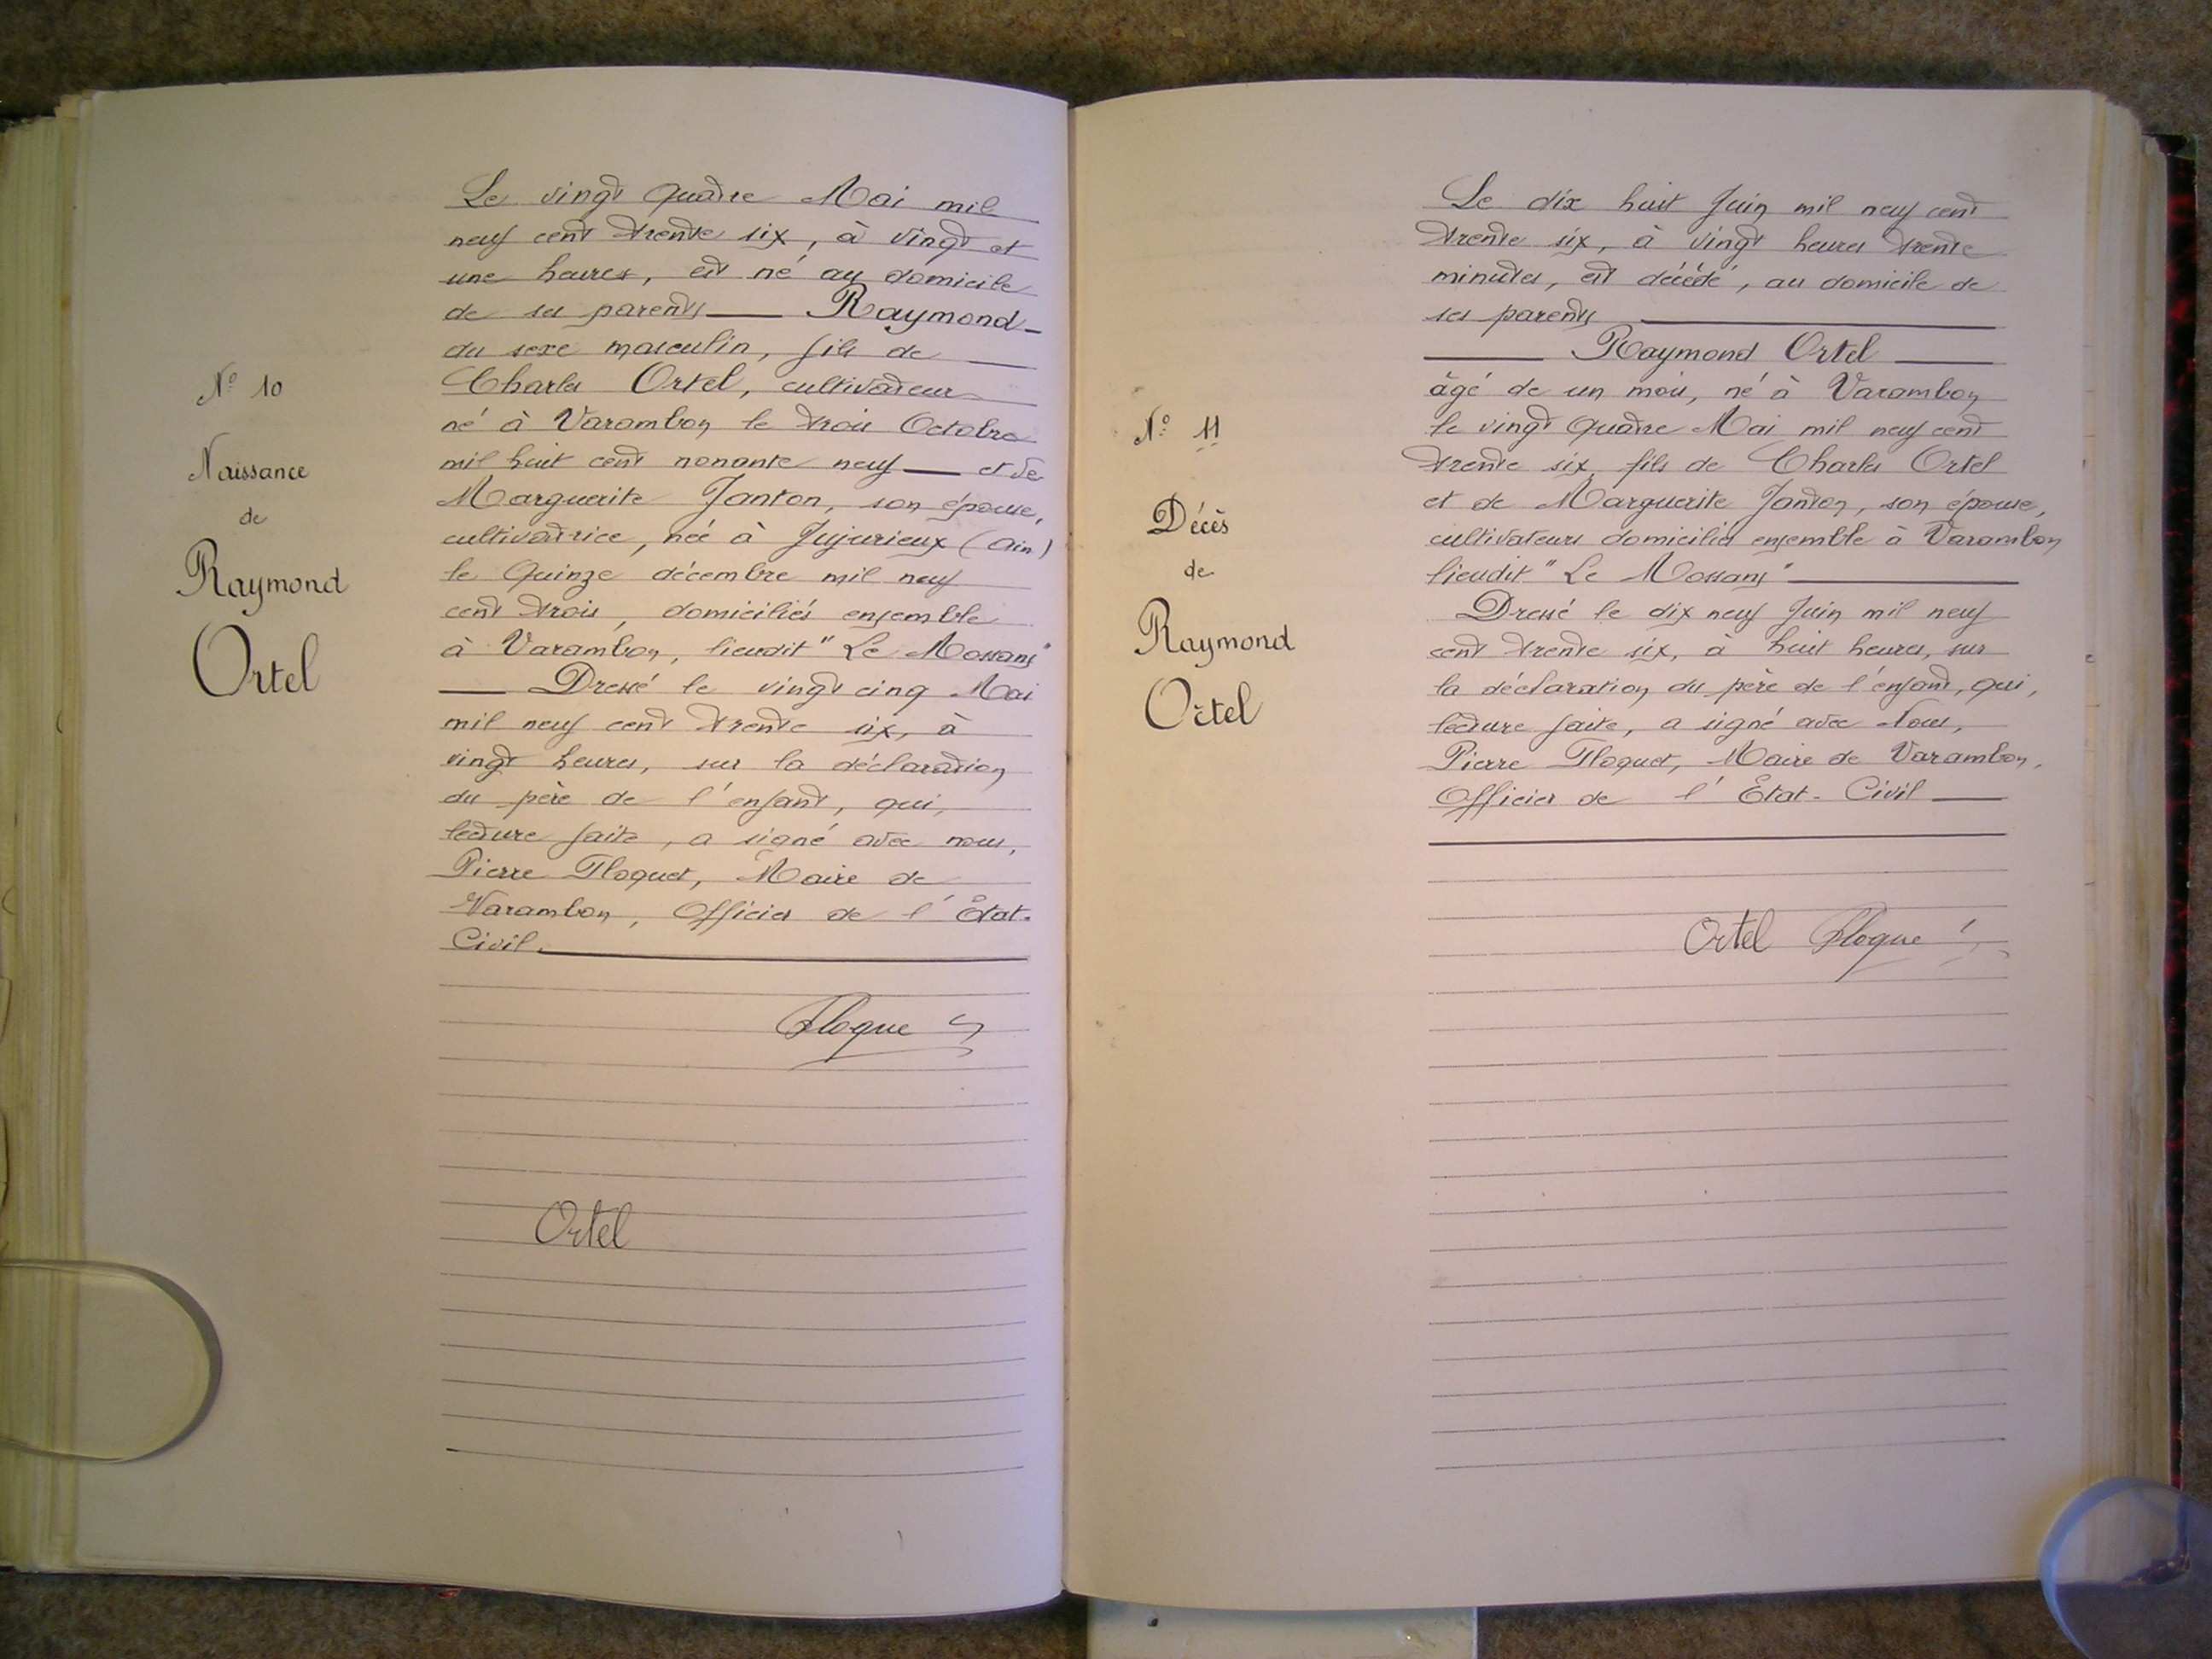 N° 10
Naissance
de
Raymond
Ortel
Le vingt quatre Mai mil
neuf cent trente six, à vingt et
une heures, est né au domicile
de ses parents Raymond
du sexe masculin, fils de
Charles Ortel, cultivateur
né à Varambon le trois Octobre
mil huit cent nonante neuf et de
Marguerite Janton, son épouse,
cultivatrice, née à Jujurieux (Ain)
le quinze décembre mil neuf
cent trois, domiciliés ensemble
à Varambon, lieudit "Le Mossans"
Dressé le vingt cinq Mai
mil neuf cent trente six, à
vingt heures, sur la déclaration
du père de l'enfant, qui,
lecture faite, a signé avec nous,
Pierre Floquet, Maire de
Varambon, Officier de l'État-
Civil.
Floquet
Ortel
N° 11
Décès
de
Raymond
Ortel
Le dix huit Juin mil neuf cent
trente six, à vingt heures trente
minutes, est décédé, au domicile de
ses parents
Raymond Ortel
âgé de un mois, né à Varambon
le vingt quatre Mai mil neuf cent
trente six, fils de Charles Ortel
et de Marguerite Janton, son épouse,
cultivateurs domiciliés ensemble à Varambon
lieudit "Le Mossans"
Dressé le dix neuf Juin mil neuf
cent trente six, à huit heures, sur
la déclaration du père de l'enfant, qui,
lecture faite, a signé avec Nous,
Pierre Floquet, Maire de Varambon,
Officier de l'État-Civil
Ortel Floquet